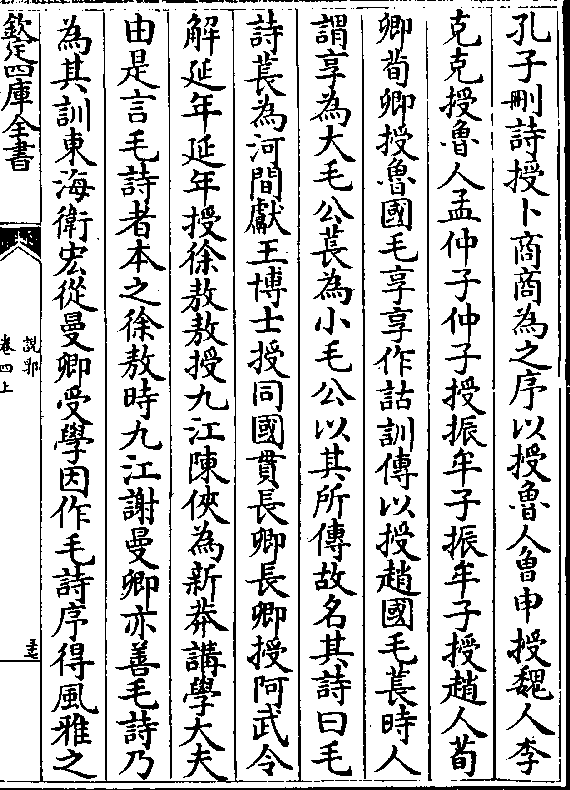 孔子刪詩授卜商商為之序以授魯人曾申授魏人李
克克授魯人孟仲子仲子授振牟子振牟子授趙人荀
卿荀卿授魯國毛享享作詁訓傳以授趙國毛萇時人
謂享為大毛公萇為小毛公以其所傳故名其詩曰毛
詩萇為河間獻王博士授同國貫長卿長卿授阿武令
解延年延年授徐敖敖授九江陳俠為新莽講學大夫
由是言毛詩者本之徐敖時九江謝曼卿亦善毛詩乃
為其訓東海衛宏從曼卿受學因作毛詩序得風雅之
欽定四庫全書
說郛
卷四上